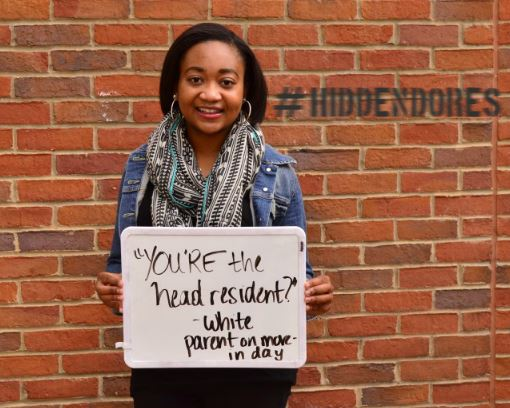 #HIDDENDORES
"YOU'RE the
head resident?"
- White
parent on move-
in day